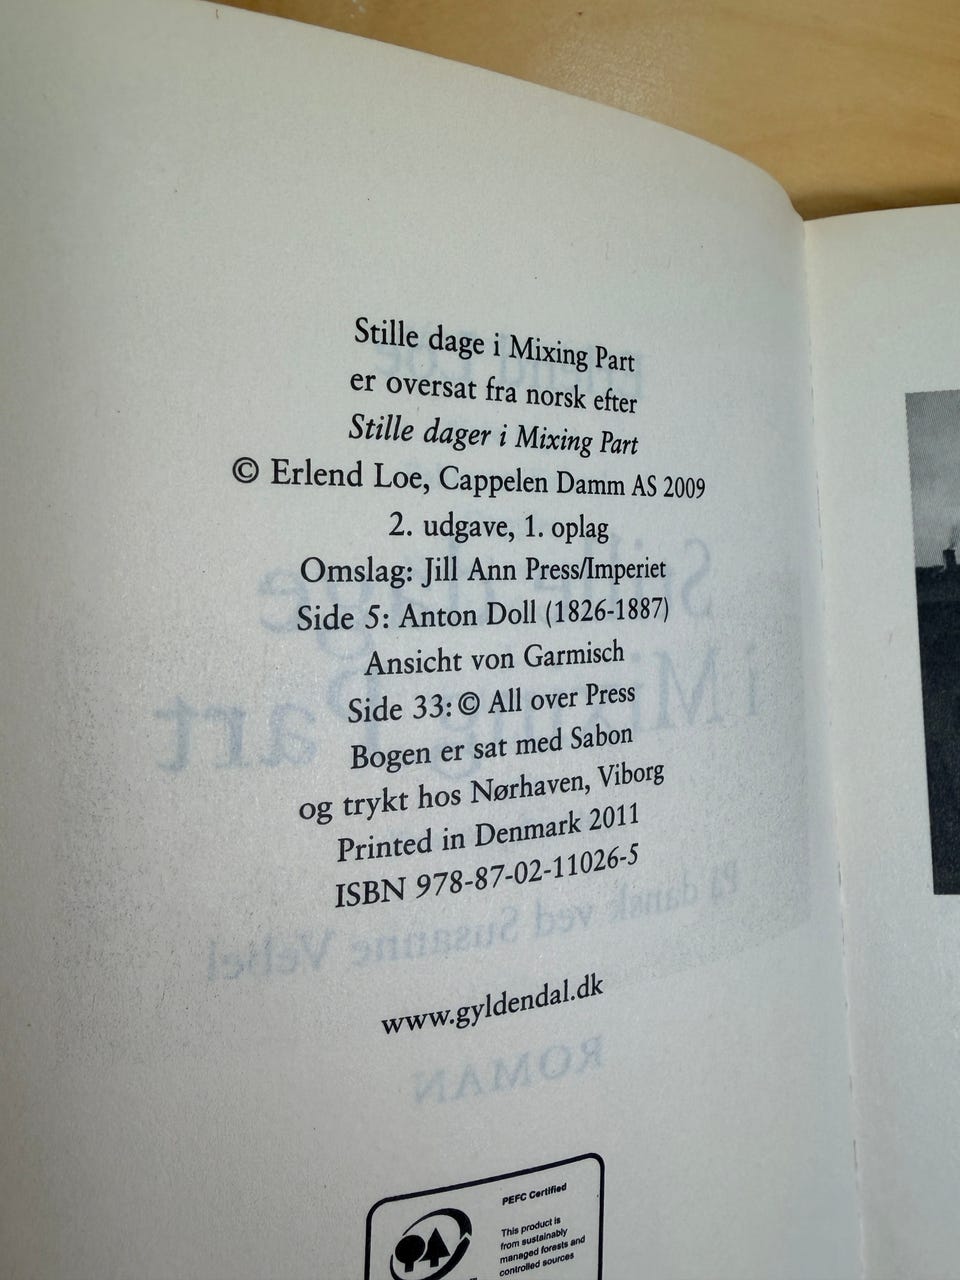 Stille dage i Mixing Part
er oversat fra norsk efter
Stille dager i Mixing Part
© Erlend Loe, Cappelen Damm AS 2009
2. udgave, 1. oplag
Omslag: Jill Ann Press/Imperiet
Side 5: Anton Doll (1826-1887)
Ansicht von Garmisch
Side 33: © All over Press
Bogen er sat med Sabon
og trykt hos Nørhaven, Viborg
Printed in Denmark 2011
ISBN 978-87-02-11026-5
www.gyldendal.dk
PEFC Certified
This product is
from sustainably
managed forests and
controlled sources